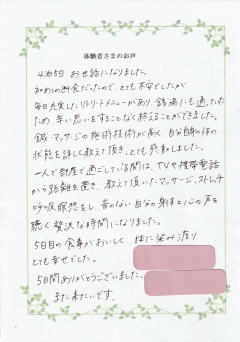 体験者さまのお声
4泊5日お世話になりました。
初めての断食だったので、とても不安でしたが
毎日充実したリトリートメニューがあり、銭湯にも通っていた
ため、辛い思いをすることなく終えることができました。
鍼、マッサージの施術技術が高く、自分自身の体の
状態を詳しく教えて頂き、とても感動しました。
一人で部屋で過ごしている間は、TVや携帯電話
から距離を置き、教えて頂いたマッサージ、ストレッチ
呼吸瞑想をし、音のない自分の身体と心の声を
聴く贅沢な時間になりました。
5日目の食事がおいしく 体に染み渡り
とても幸せでした。
5日間ありがとうございました。
また来たいです。